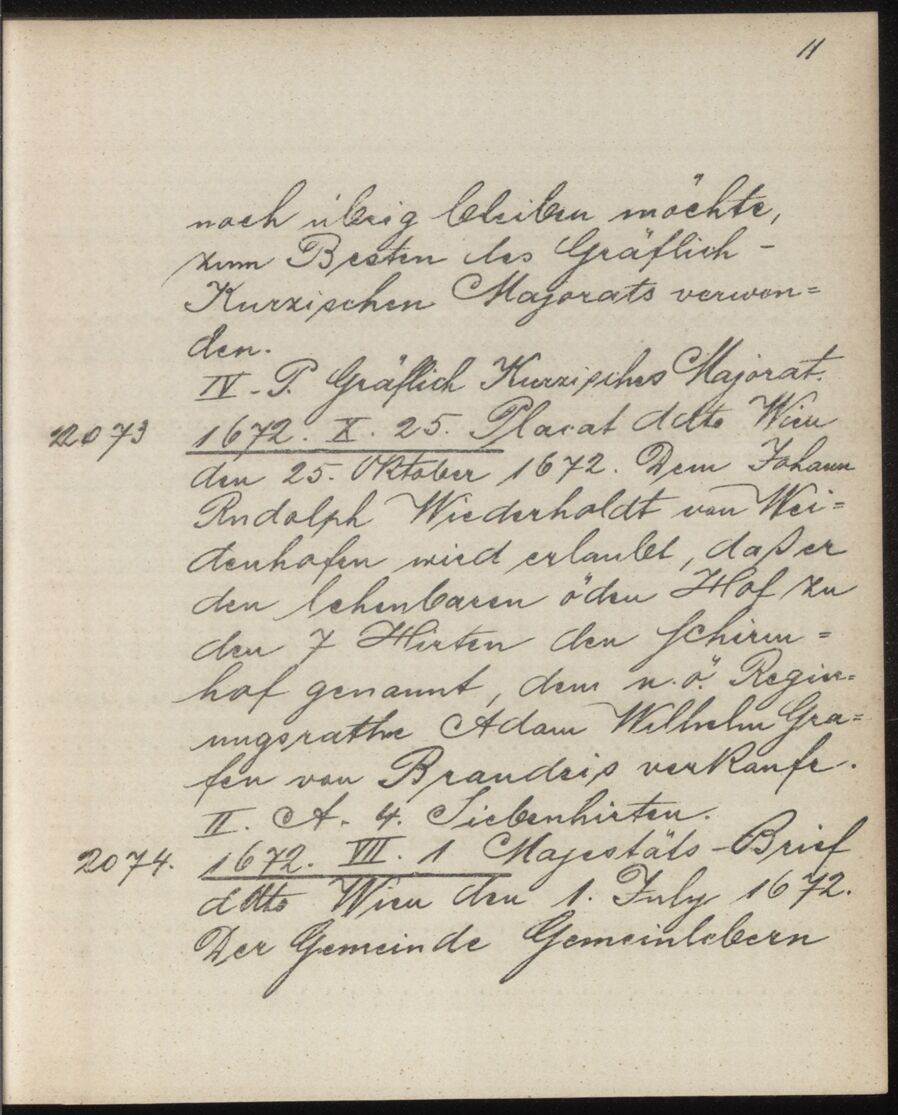 11
noch übrig bleiben möchte,
zum Besten des Gräflich-
Kurzischen Majorats verwen=
den.
IV. P. Gräflich Kurzisches Majorat.
2073 1672. X. 25. Placat ddto Wien
den 25. Oktober 1672. Dem Johann
Rudolph Wiederholdt von Wei=
denhofen wird erlaubt, daß er
den lehenbaren öden Hof zu
den 7 Hirten den Schirm=
hof genannt, dem n.ö. Regier=
ungsrathe Adam Wilhelm Gra=
fen von Brandeis verkaufe.
II. A. 4. Siebenhirten.
2074. 1672. VII. 1 Majestäts-Brief
ddto Wien den 1. July 1672.
Der Gemeinde Gemeinlebern